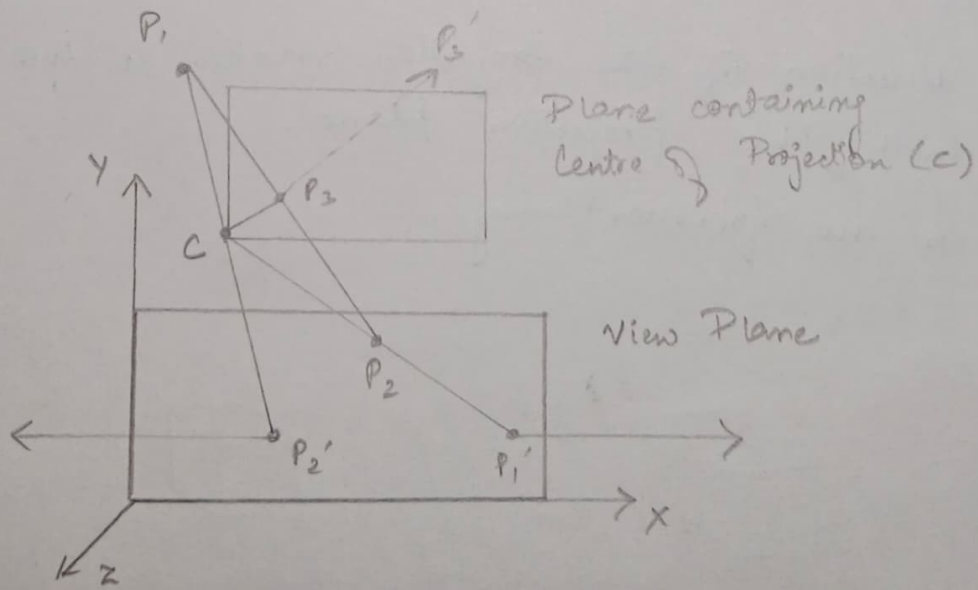 P₁
P₃'
Plane containing
Centre of Projection (C)
Y
P₃
C
View Plane
P₂
P₂'
P₁'
X
Z